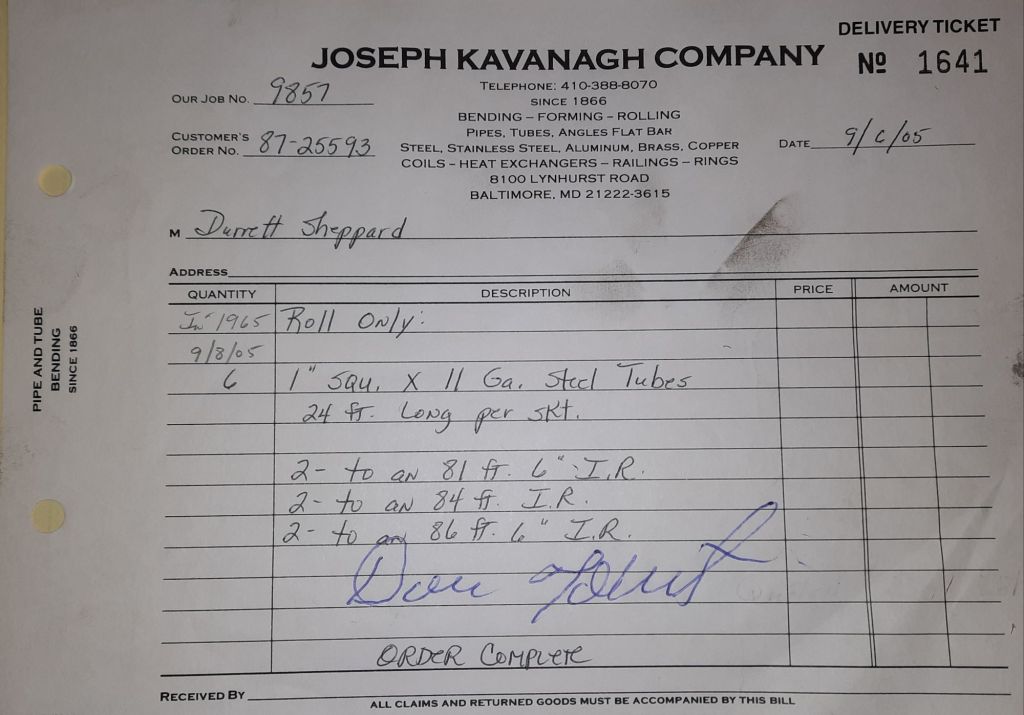 DELIVERY TICKET
JOSEPH KAVANAGH COMPANY
Nº 1641
TELEPHONE: 410-388-8070
SINCE 1866
BENDING – FORMING – ROLLING
PIPES, TUBES, ANGLES FLAT BAR
STEEL, STAINLESS STEEL, ALUMINUM, BRASS, COPPER
COILS – HEAT EXCHANGERS – RAILINGS – RINGS
8100 LYNHURST ROAD
BALTIMORE, MD 21222-3615
OUR JOB NO. 9857
CUSTOMER'S
ORDER NO. 87-25593
DATE 9/6/05
M Durrett Sheppard
ADDRESS
QUANTITY DESCRIPTION PRICE AMOUNT
1965 Roll Only:
9/8/05
6 1" squ. X 11 Ga. Steel Tubes
24 ft. Long per skt.
2- to an 81 ft. 6" I.R.
2- to an 84 ft. I.R.
2- to an 86 ft. 6" I.R.
ORDER COMPLETE
RECEIVED BY
ALL CLAIMS AND RETURNED GOODS MUST BE ACCOMPANIED BY THIS BILL
PIPE AND TUBE
BENDING
SINCE 1866